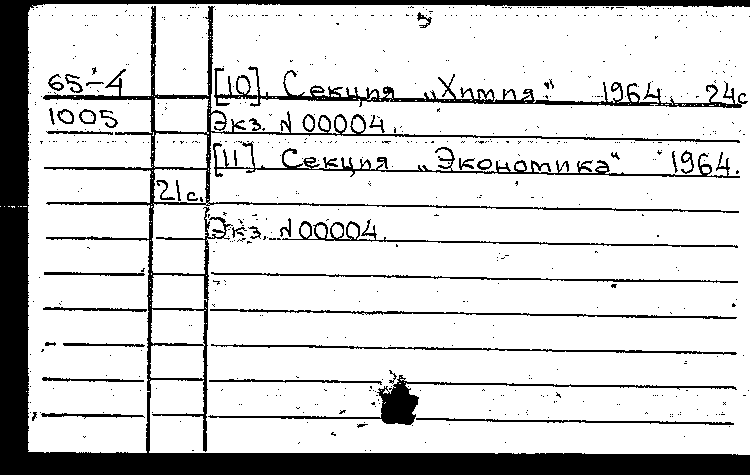 5
65-4 [10]. Секция „Химия." 1964. 24с
1005 Экз. N 00004.
[11]. Секция „Экономика". 1964.
21с.
Экз. N 00004.